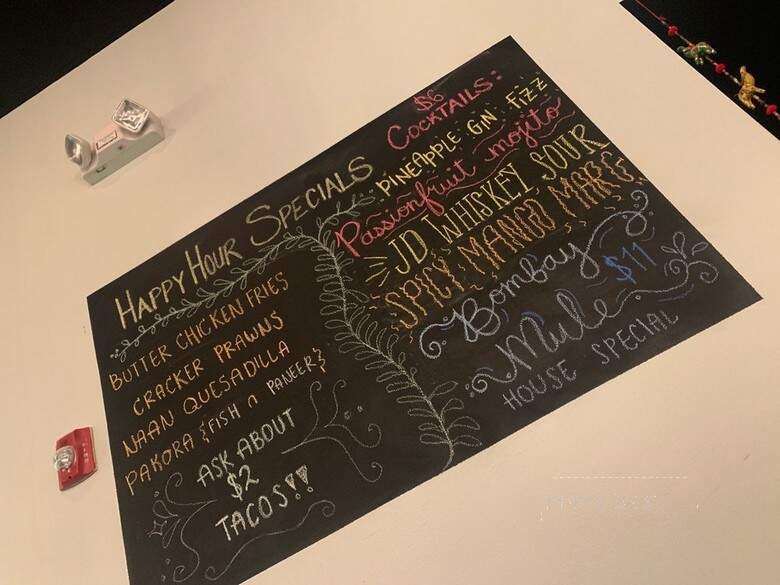 HAPPY HOUR SPECIALS
BUTTER CHICKEN FRIES
CRACKER PRAWNS
NAAN QUESADILLA
PAKORA {FISH n PANEER}
ASK ABOUT
$2
TACOS!!
$6
COCKTAILS:
PINEAPPLE GIN FIZZ
Passionfruit mojito
JD WHISKEY SOUR
SPICY MANGO MARG
Bombay
Mule $11
HOUSE SPECIAL